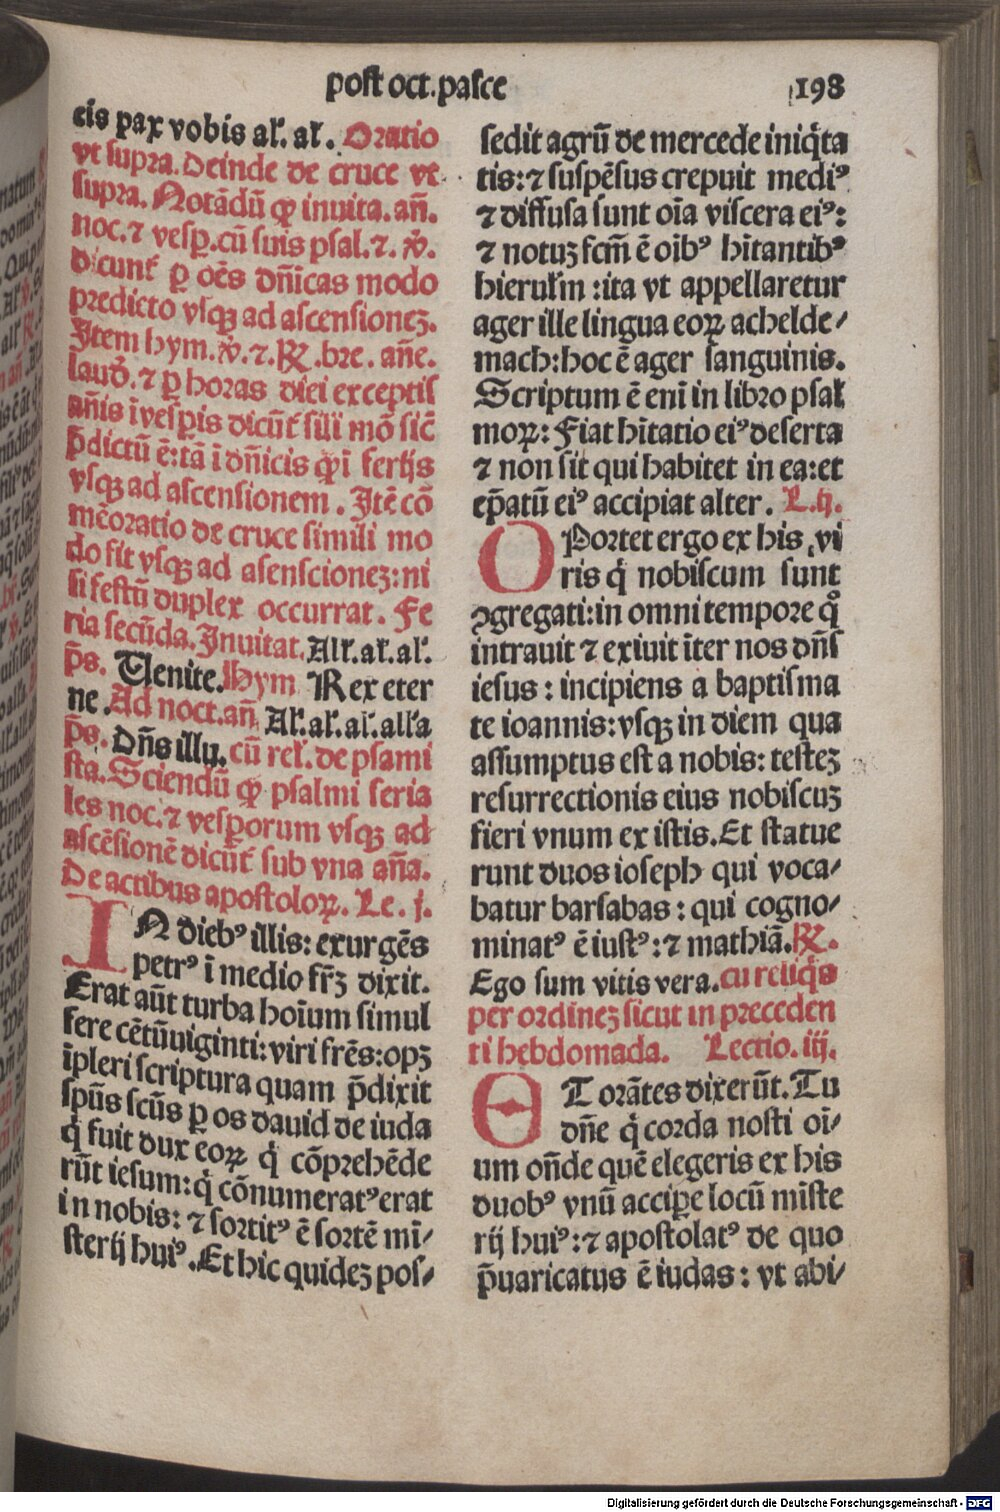 post oct. pasce
198
cis pax vobis al'. al'. Oratio
vt supra. Deinde de cruce vt
supra. Notādū ꝙ inuita. añ.
noc. ⁊ vesp̲. cū suis psal. ⁊. ℣.
dicunt̄ p̲ oēs dñicas modo
predicto vsqꝫ ad ascensioneꝫ.
Item hym. ℣. ⁊. ℞. bre. añe.
laud̄. ⁊ p̲ horas diei exceptis
añis ī vesp̲is dicūt̄ sili mō sic̄
p̄dictū ē: tā ī dñicis ꝙ̄ ī ferijs
vsqꝫ ad ascensionem. Itē cō
mēoratio de cruce simili mo
do fit vsqꝫ ad asenscionez: ni
si festū duplex occurrat. Fe
ria secūda. Inuitat. Alr. al'. al'.
p̄s. Uenite. Hym Rex eter
ne. Ad noct. añ. Al'. al'. al'. alla
p̄s. Dñs illu. cū rel'. de psami
sta. Sciendū ꝙ psalmi feria
les noc. ⁊ vesp̲orum vsqꝫ ad
ascēsionē dicūt̄ sub vna aña.
De actibus apostoloꝝ. Le. j.
IN diebꝰ illis: exurgēs
petrꝰ ī medio fr̄ꝫ dixit.
Erat aūt turba hoīum simul
fere cētūuiginti: viri frēs: opꝫ
īpleri scriptura quam p̄dixit
spūs scūs p̲ os dauid de iuda
q̇ fuit dux eoꝝ q̇ cōprehēde
rūt iesum: q̇ cōnumeratꝰ erat
in nobis: ⁊ sortitꝰ ē sortē mi/
sterij huiꝰ. Et hic quidez pos/
sedit agrū de mercede iniq̇ta
tis: ⁊ suspēsus crepuit mediꝰ
⁊ diffusa sunt oīa viscera eiꝰ:
⁊ notuꝫ fcm̄ ē oībꝰ hītantibꝰ
hierusl'm: ita vt appellaretur
ager ille lingua eoꝝ achelde/
mach: hoc ē ager sanguinis.
Scriptum ē eni in libro psal
moꝝ: Fiat hītatio eiꝰ deserta
⁊ non sit qui habitet in ea: et
ep̄atū eiꝰ accipiat alter. L. ij.
OPortet ergo ex his vi
ris q̇ nobiscum sunt
ꝯgregati: in omni tempore q̊
intrauit ⁊ exiuit īter nos dñs
iesus: incipiens a baptisma
te ioannis: vsqꝫ in diem qua
assumptus est a nobis: testeꝫ
resurrectionis eius nobiscuꝫ
fieri vnum ex istis. Et statue
runt duos ioseph qui voca/
batur barsabas: qui cogno/
minatꝰ ē iustꝰ: ⁊ mathiā. ℞.
Ego sum vitis vera. cū reliq̇s
per ordineꝫ sicut in preceden
ti hebdomada. Lectio. iij.
ET orātes dixerūt. Tu
dñe q̇ corda nosti oī/
um oñde quē elegeris ex his
duobꝰ vnū accip̲e locū mīste
rij huiꝰ: ⁊ apostolatꝰ de quo
p̄uaricatus ē iudas: vt abi/
Digitalisierung gefördert durch die Deutsche Forschungsgemeinschaft - DFG